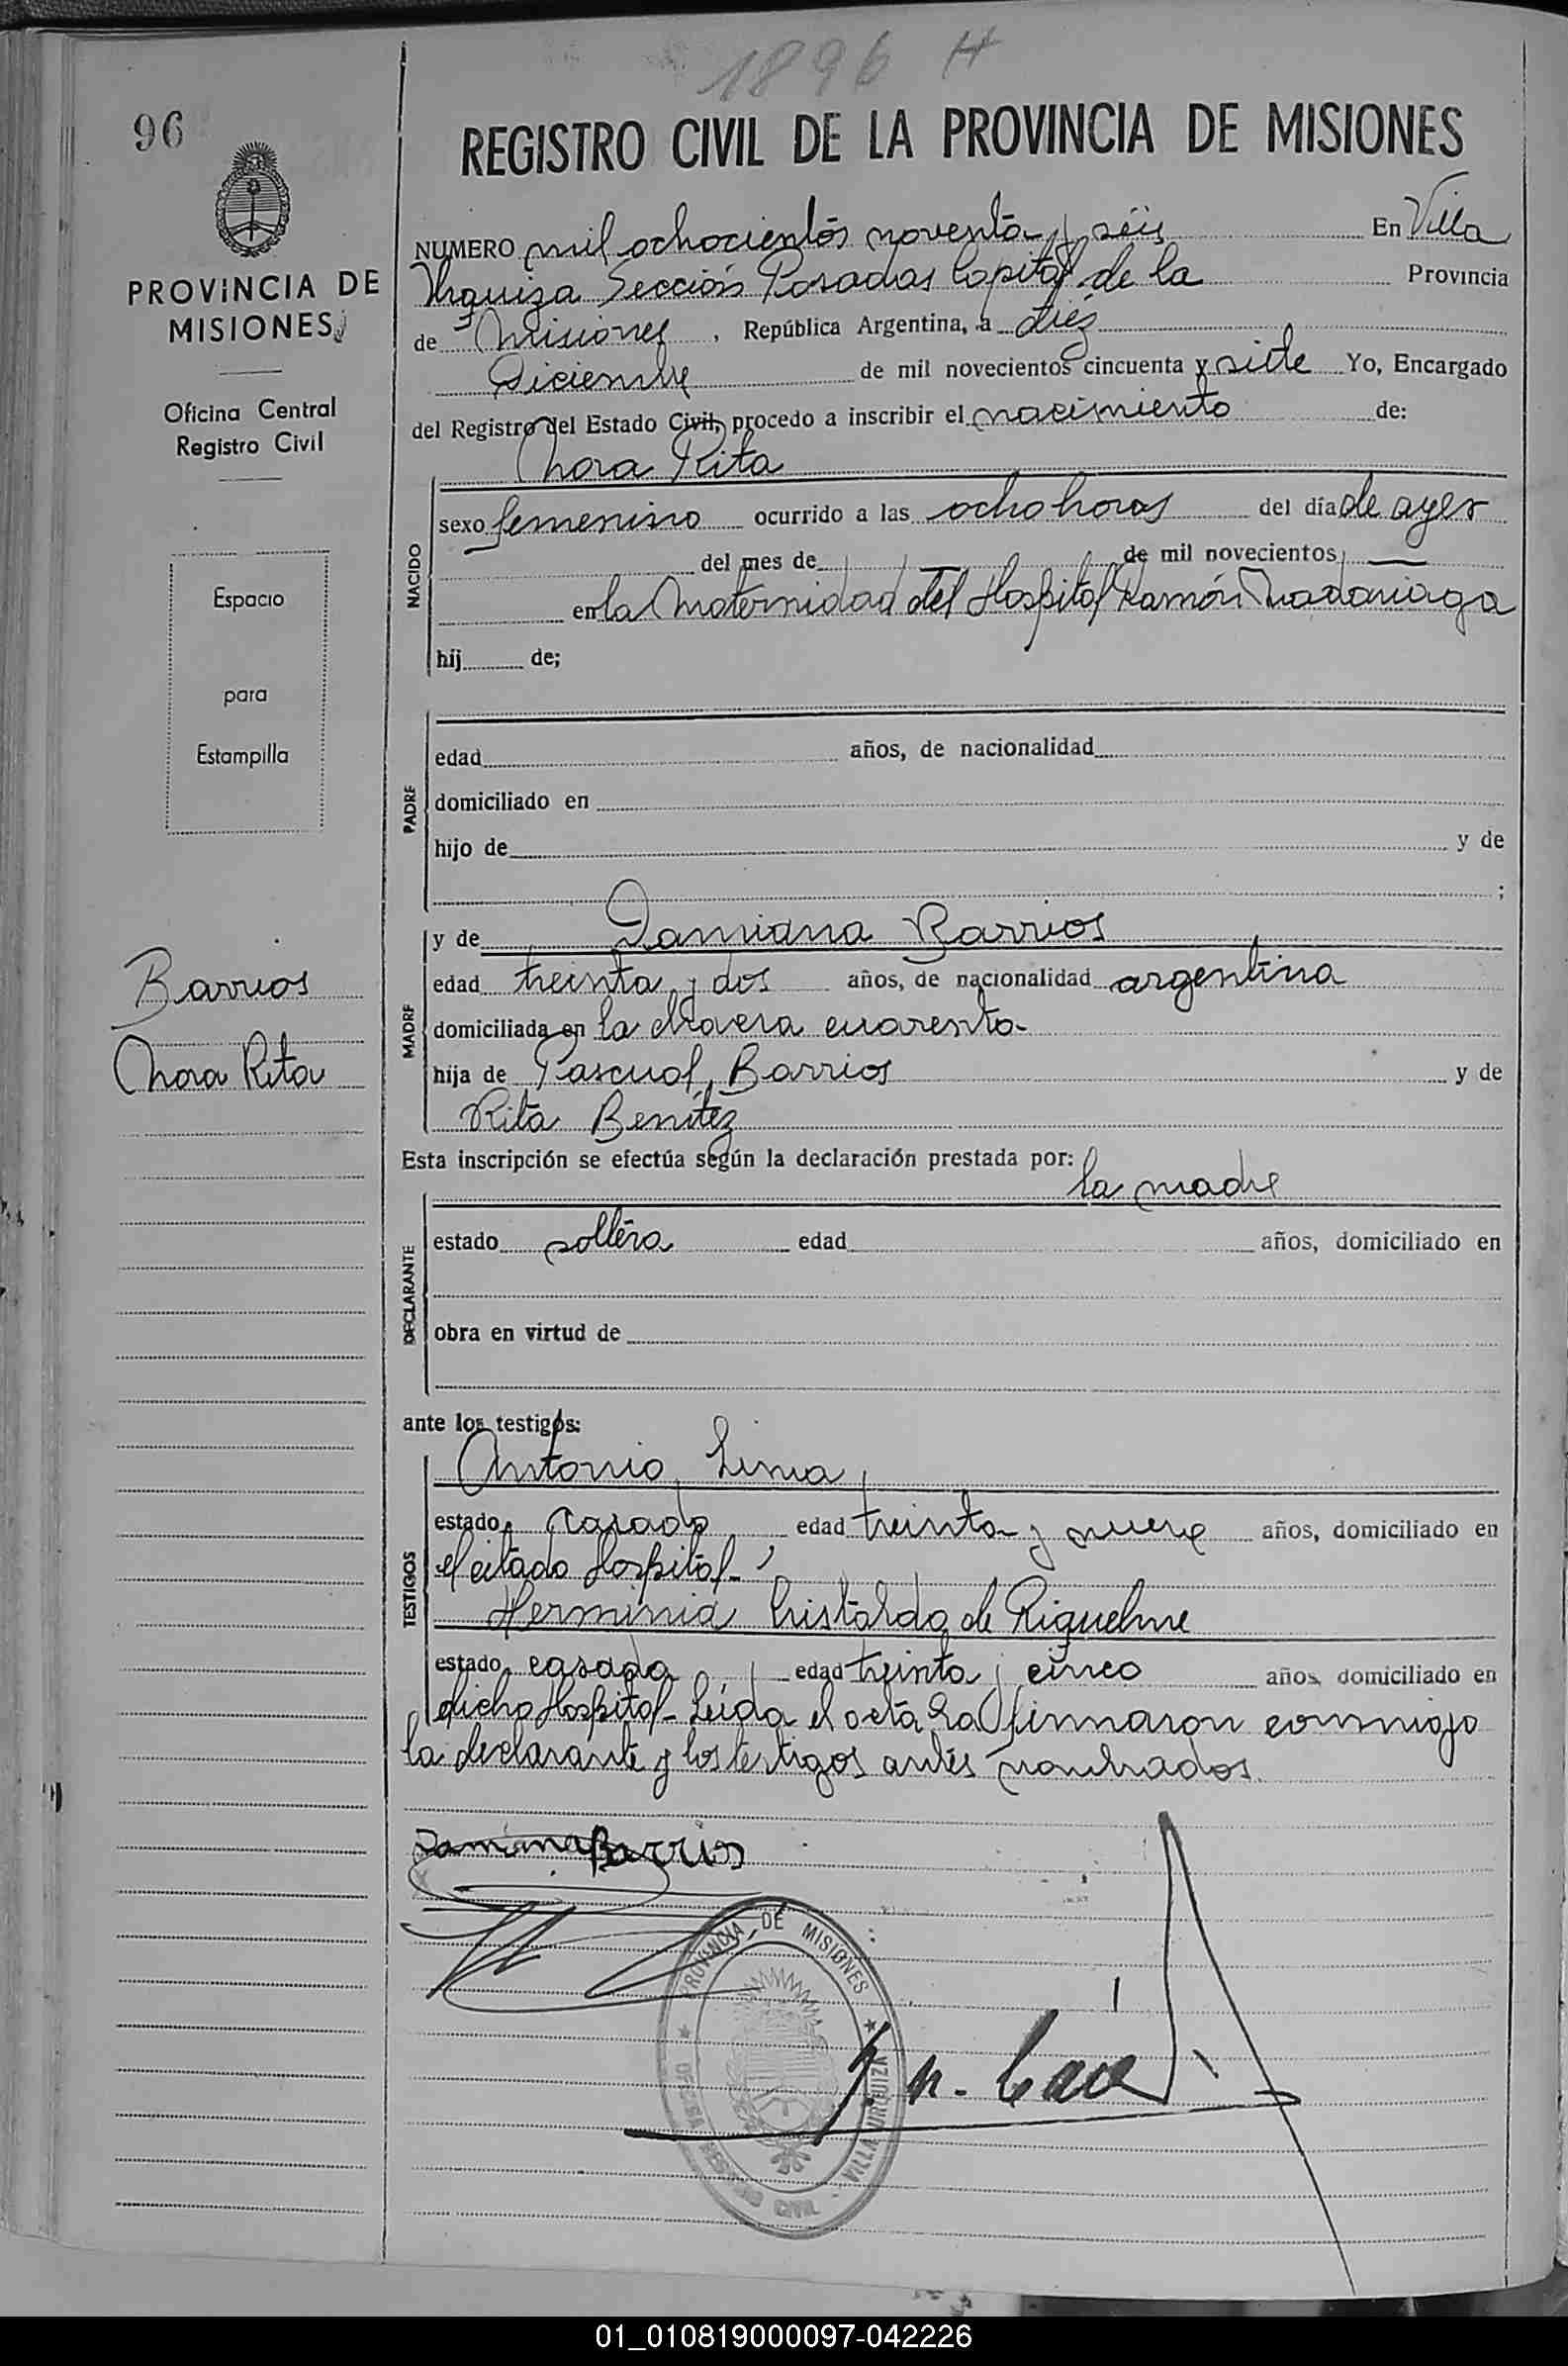 1896 H
96
REGISTRO CIVIL DE LA PROVINCIA DE MISIONES
PROVINCIA DE
MISIONES
Oficina Central
Registro Civil
Espacio
para
Estampilla
Barrios
Nora Rita
NUMERO mil ochocientos noventa y seis En Villa
Urquiza Sección Posadas Capital de la Provincia
de Misiones, República Argentina, a diez
Diciembre de mil novecientos cincuenta y siete Yo, Encargado
del Registro del Estado Civil, procedo a inscribir el nacimiento de:
Nora Rita
NACIDO
sexo femenino ocurrido a las ocho horas del día de ayer
del mes de de mil novecientos
en la Maternidad del Hospital Ramón Madariaga
hij de;
PADRE
edad años, de nacionalidad
domiciliado en
hijo de y de
;
MADRE
y de Damiana Barrios
edad treinta y dos años, de nacionalidad argentina
domiciliada en la chacra cuarenta-
hija de Pascual Barrios y de
Rita Benítez
Esta inscripción se efectúa según la declaración prestada por:
la madre
DECLARANTE
estado soltera edad años, domiciliado en
obra en virtud de
ante los testigos:
TESTIGOS
Antonio Lima
estado casado edad treinta y nueve años, domiciliado en
el citado Hospital-
Herminia Cristaldo de Riquelme
estado casada edad treinta y cinco años domiciliado en
dicho Hospital- Leída el acta la firmaron conmigo
la declarante y los testigos antes nombrados.
Damiana Barrios
PROVINCIA DE MISIONES
VILLA URQUIZA
REGISTRO CIVIL
01_010819000097-042226